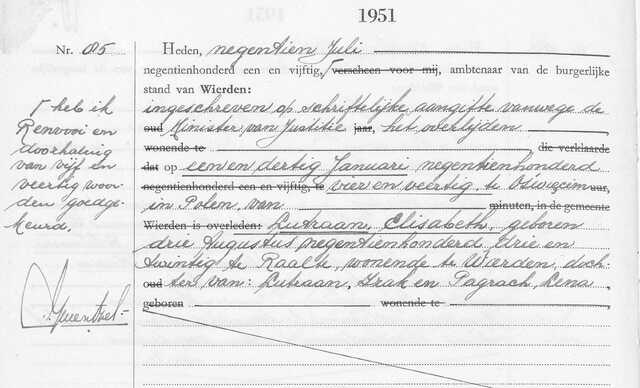 1951
Nr. 85
Heden, negentien Juli
negentienhonderd een en vijftig, verscheen voor mij, ambtenaar van de burgerlijke
stand van Wierden:
ingeschreven op schriftelijke aangifte vanwege de
oud Minister van Justitie jaar, het overlijden
wonende te die verklaarde
dat op een en dertig Januari negentienhonderd
negentienhonderd een en vijftig, te vier en veertig, te Oswiecim uur,
in Polen, van minuten, in de gemeente
Wierden is overleden: Lutraan, Elisabeth, geboren
drie Augustus negentienhonderd drie en
twintig te Raalte, wonende te Wierden, doch-
oud ter van: Lutraan, Izak en Pagrach, Lena,
geboren wonende te
heb ik
Renvooi en
doorhaling
van vijf en
veertig woor-
den goedge-
keurd.